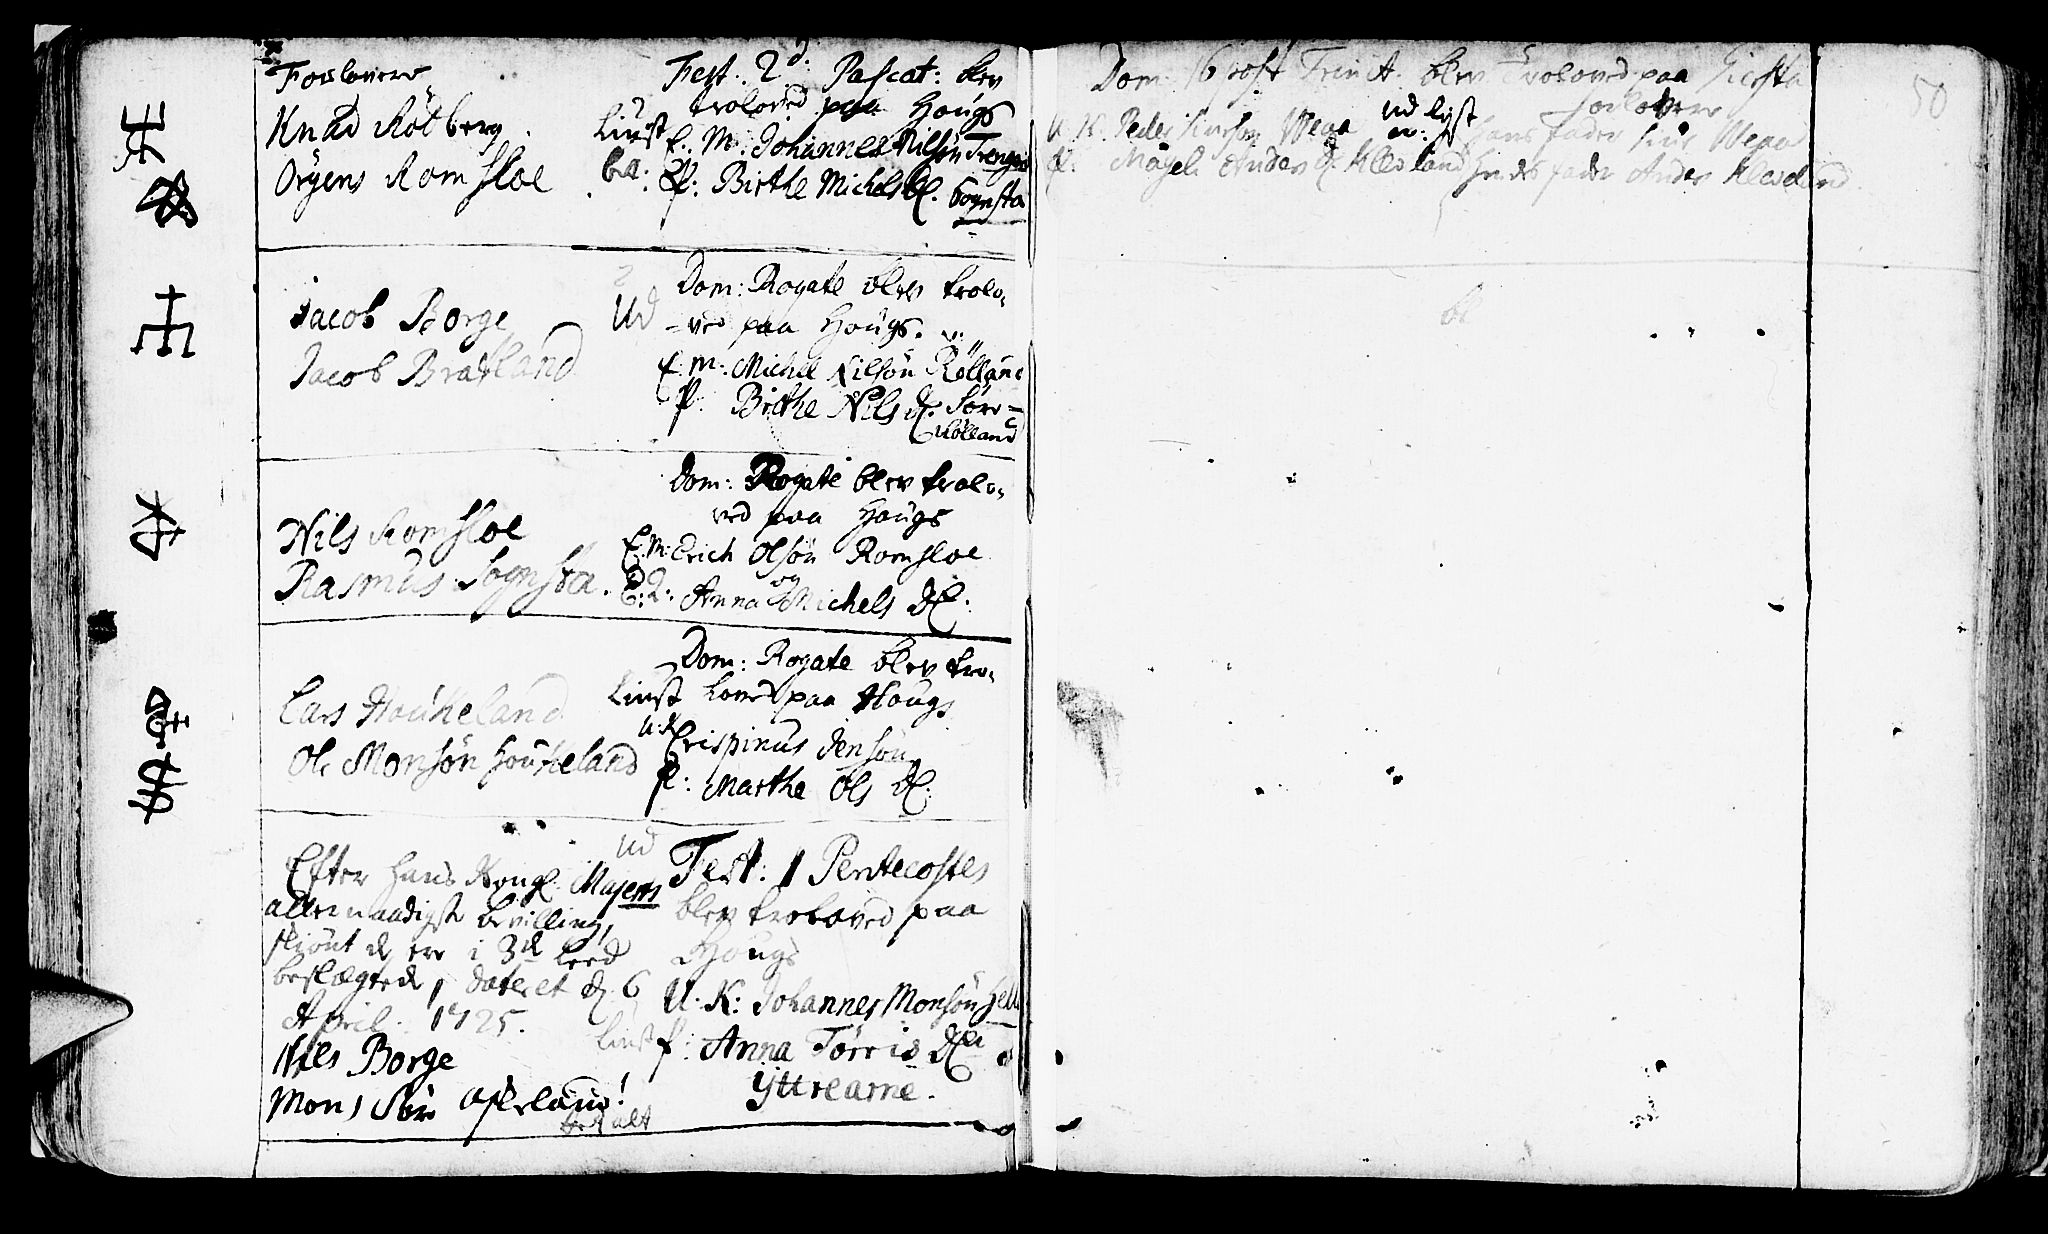 Forlovere
Knud Rötberg.
Örgens Romsloe
Fest. 2d. Pascat: blev
trolovед paa Hougs
E. M: Johannes Nilsön Trengre
P: Birthe Michels D. Sognsta
Jacob Borge
Jacob Bratland
Ud
Dom: Rogate blev trolo-
-ved paa Hougs.
E: M: Michel Nilsön Rölland
P. Birthe Nils D. Söre-
Rölland
Nils Romsloe
Rasmus Sognsta.
Dom: Rogate blev trolo-
ved paa Hougs
E: M: Erich Olsön Romsloe
og
E: Q: Anna Michels D:
Lars Houkeland
Ole Monsön Houkeland
Dom: Rogate blev tro-
loved paa Hougs
U. K Crispinus Jensön
P: Marthe Ols D:
Ud
Efter Hans Kongl. Majests
allernaadigste bevilling,
skiönt de ere i 3d Leed
beslægtede, dateret d. 6
April. 1725.
Nils Borge
Mons Söre Aspeland!
betalt
Fest: 1 Pentecostes
blev troloved paa
Hougs
U. K: Johannes Monsön Helle
P: Anna Törris D
Yttrearne.
Dom. 16 post Trinit. blev Troloved paa Giersta
50
Forlovere
ud lyst
U. K. Peder Wexa Hans fader Wexa
P. Magele Anders D. Klevland Hendes fader Anders Klevland.